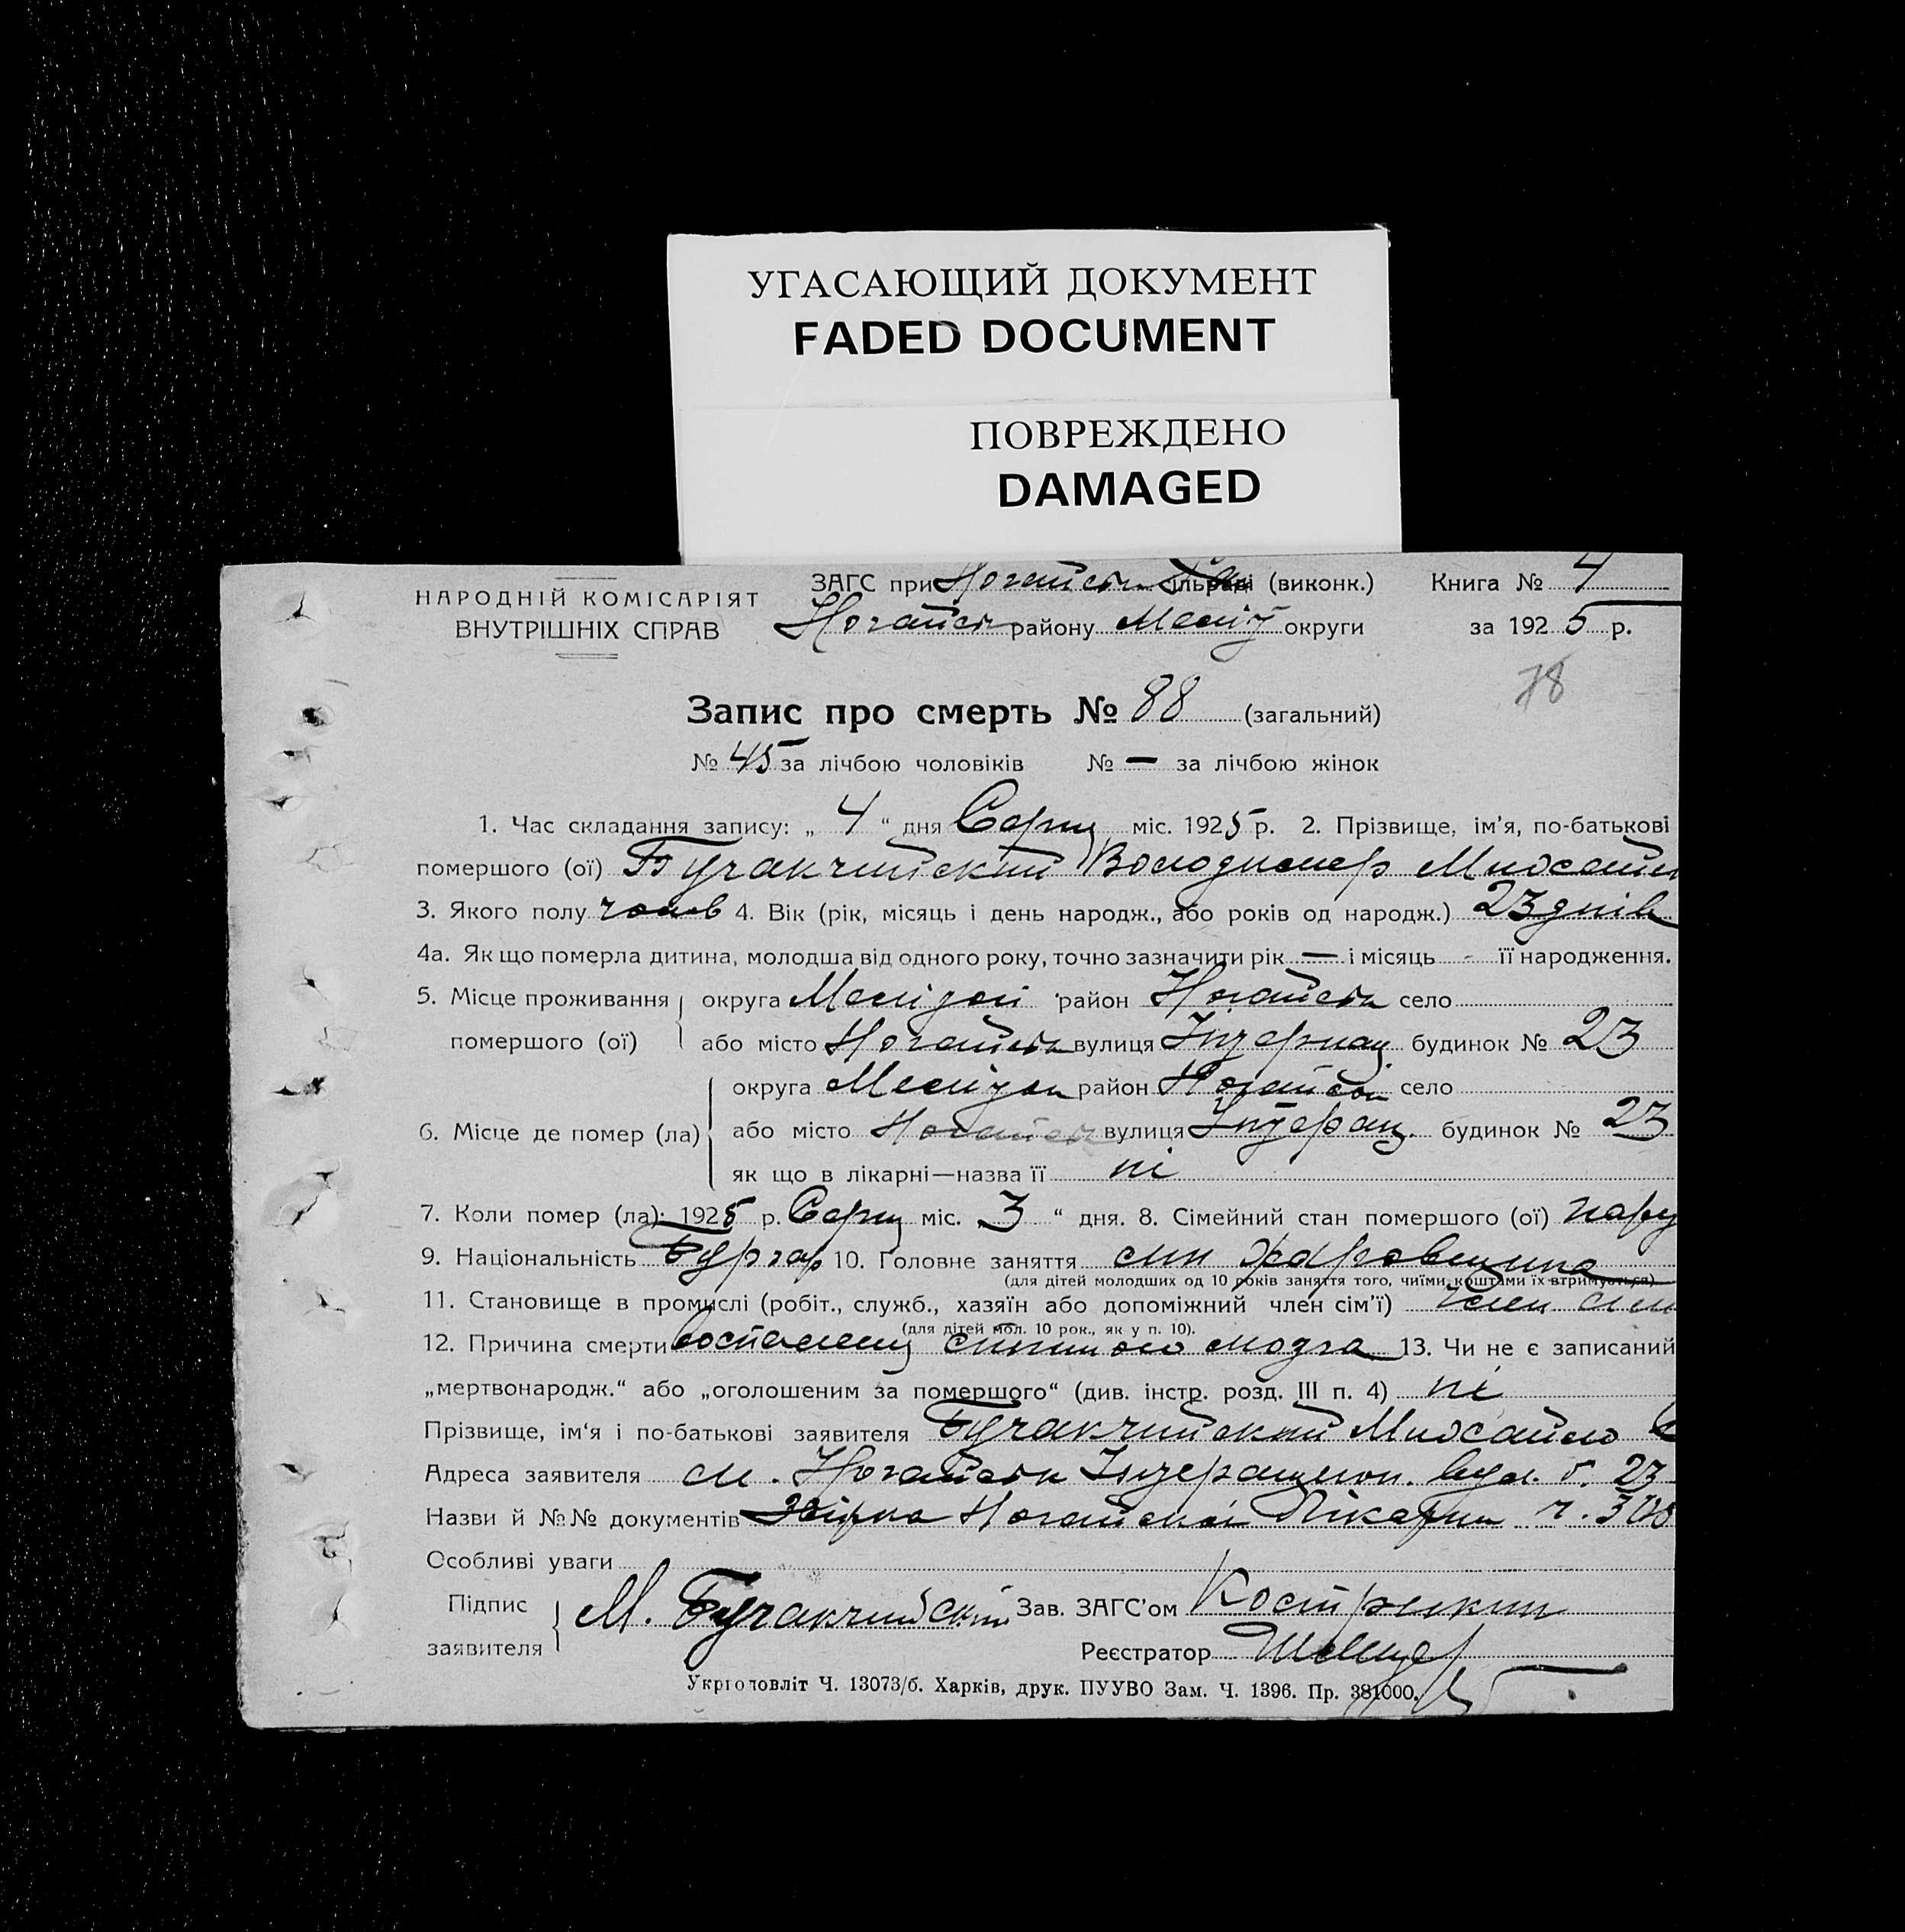 УГАСАЮЩИЙ ДОКУМЕНТ
FADED DOCUMENT
ПОВРЕЖДЕНО
DAMAGED
НАРОДНІЙ КОМІСАРІЯТ
ВНУТРІШНІХ СПРАВ
ЗАГС при Ногайськ ільраді (виконк.) Книга № 4
Ногайськ району Меліт округи за 1925 р.
78
Запис про смерть № 88 (загальний)
№ 45 за лічбою чоловіків № — за лічбою жінок
1. Час складання запису: „ 4 “ дня Серпн міс. 1925 р. 2. Прізвище, ім’я, по-батькові
помершого (ої) Бучакчийский Володимер Михайл
3. Якого полу чолов 4. Вік (рік, місяць і день народж., або років од народж.) 23 днів
4а. Як що померла дитина, молодша від одного року, точно зазначити рік — і місяць - її народження.
5. Місце проживання помершого (ої) округа район Ногайськ село
або місто Ногайськ вулиця будинок № 23
6. Місце де помер (ла) округа район Ногайськ село
або місто Ногайськ вулиця будинок № 23
як що в лікарні—назва її ні
7. Коли помер (ла): 1925 р. Серпн міс. „ 3 “ дня. 8. Сімейний стан помершого (ої)
9. Національність 10. Головне заняття син
(для дітей молодших од 10 років заняття того, чиїми коштами їх втримується)
11. Становище в промислі (робіт., служб., хазяїн або допоміжний член сім’ї) член сім
(для дітей мол. 10 рок., як у п. 10).
12. Причина смерти мозга 13. Чи не є записаний
„мертвонародж.“ або „оголошеним за помершого“ (див. інстр. розд. III п. 4) ні
Прізвище, ім‘я і по-батькові заявителя Бучакчийский Михайло
Адреса заявителя м. Ногайськ вул. б. 23
Назви й №№ документів Ногайської Лікарні ч.
Особливі уваги
Підпис заявителя М. Бучакчийский Зав. ЗАГС’ом
Реєстратор
Укрголовліт Ч. 13073/б. Харків, друк. ПУУВО Зам. Ч. 1396. Пр. 381000.